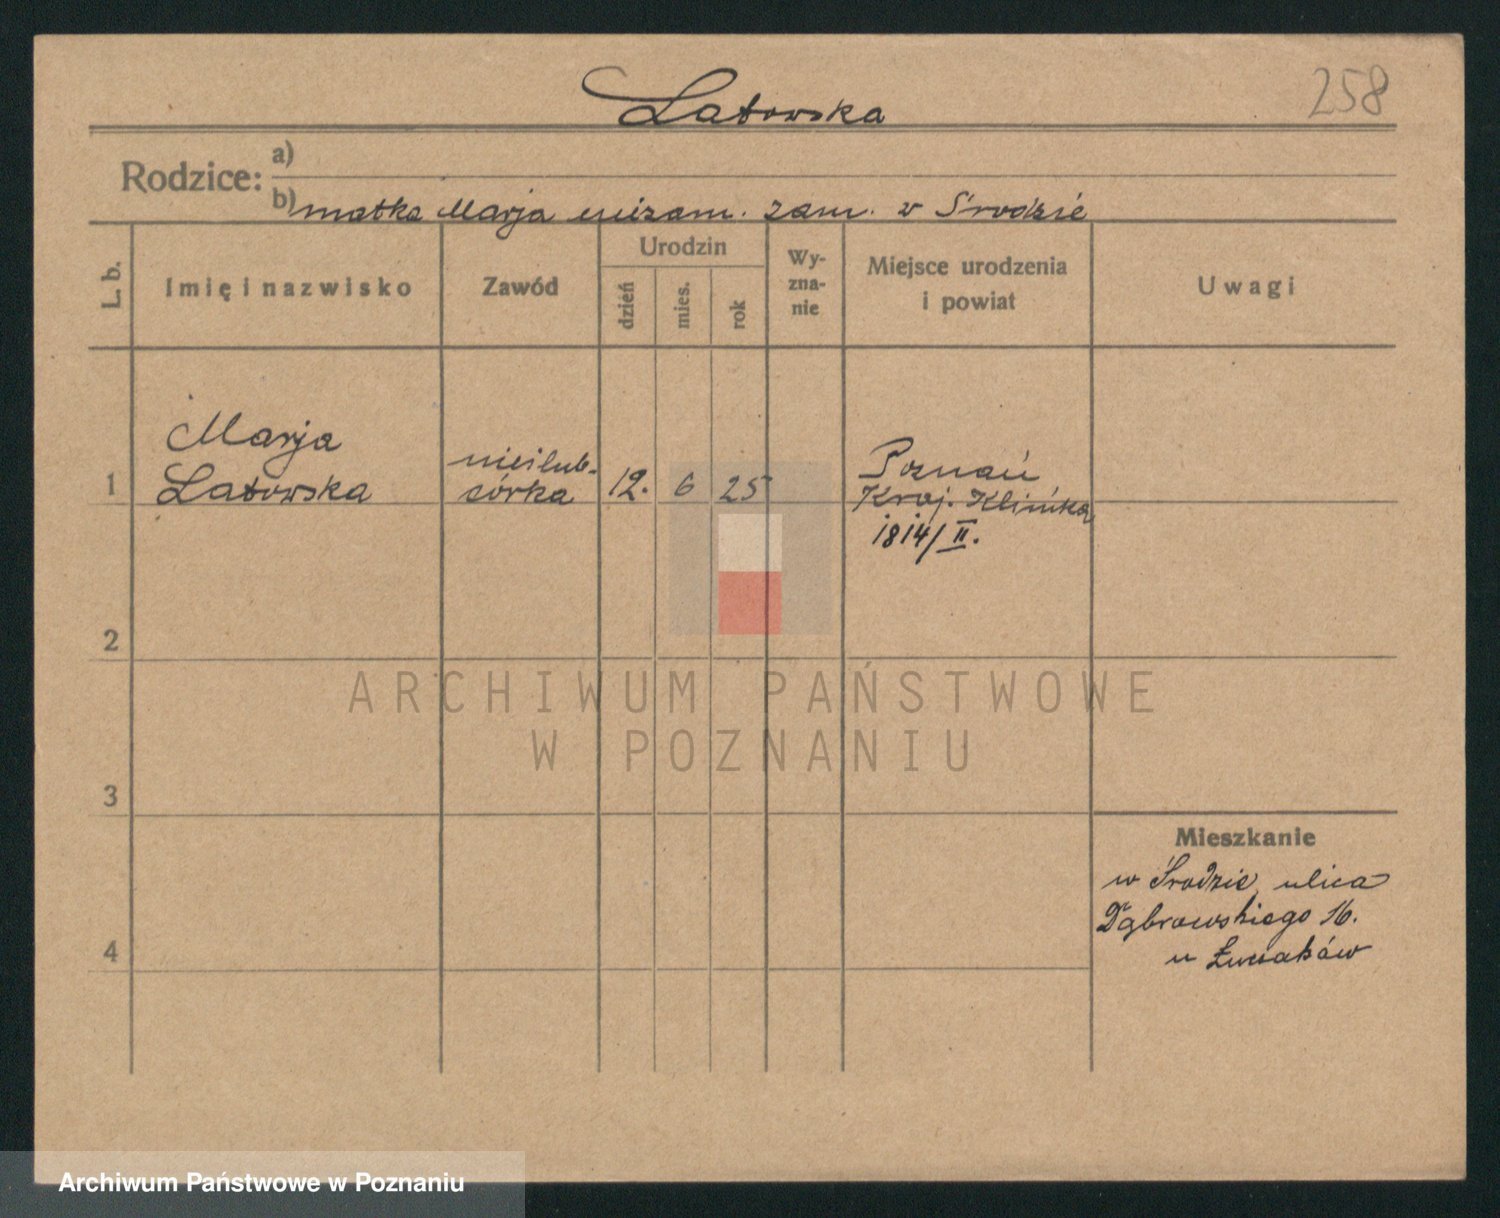 Latowska
258
Rodzice:
a)
b) matka Marja niezam. zam. w Środzie
L. b.
Imię i nazwisko
Zawód
Urodzin
dzień
mies.
rok
Wy-
zna-
nie
Miejsce urodzenia
i powiat
Uwagi
1
Marja
Latowska
nieślub-
córka
12.
6
25
Poznań
Kraj. Klinika
1814/II.
2
3
4
Mieszkanie
w Środzie, ulica
Dąbrowskiego 16.
u
ARCHIWUM PAŃSTWOWE
W POZNANIU
Archiwum Państwowe w Poznaniu